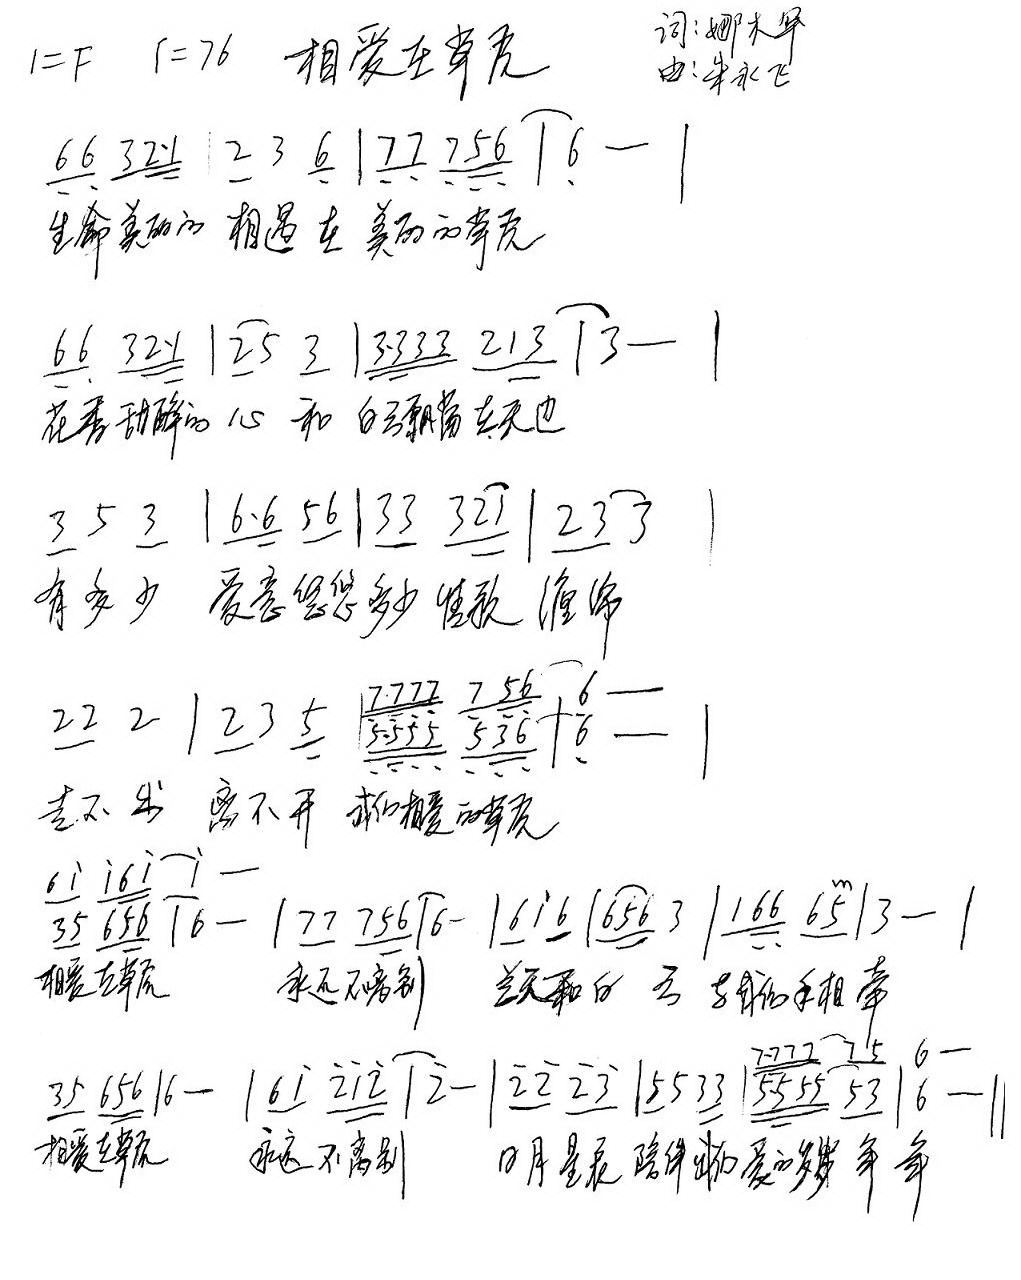 1=F ♩=76 相爱在草原
词:娜木罕
曲:朱永飞
66 32·1 | 2 3 6 | 77 756 | 6 — |
生命美丽的 相遇在 美丽的草原
66 32·1 | 25 3 | 3·333 213 | 3 — |
花香甜醉的心 和 白云飘荡在天边
3 5 3 | 6·6 56 | 33 321 | 23 3 |
有多少 爱意悠悠多少情歌
7·777 7 56 6 —
22 2 | 2 3 5 | 5·555 536 | 6 — |
走不出 离不开 我们相爱的草原
61 161 1 —
35 656 | 6 — | 77 756 | 6 — | 616 | 656 3 | 166 65 | 3 — |
相爱在草原 永远不离别 兰天和白云 我们手相牵
7·777 75 6 —
35 656 | 6 — | 61 212 | 2 — | 22 23 | 55 33 | 5555 53 | 6 — ‖
相爱在草原 永远不离别 日月星辰 陪伴我们爱的岁岁年年